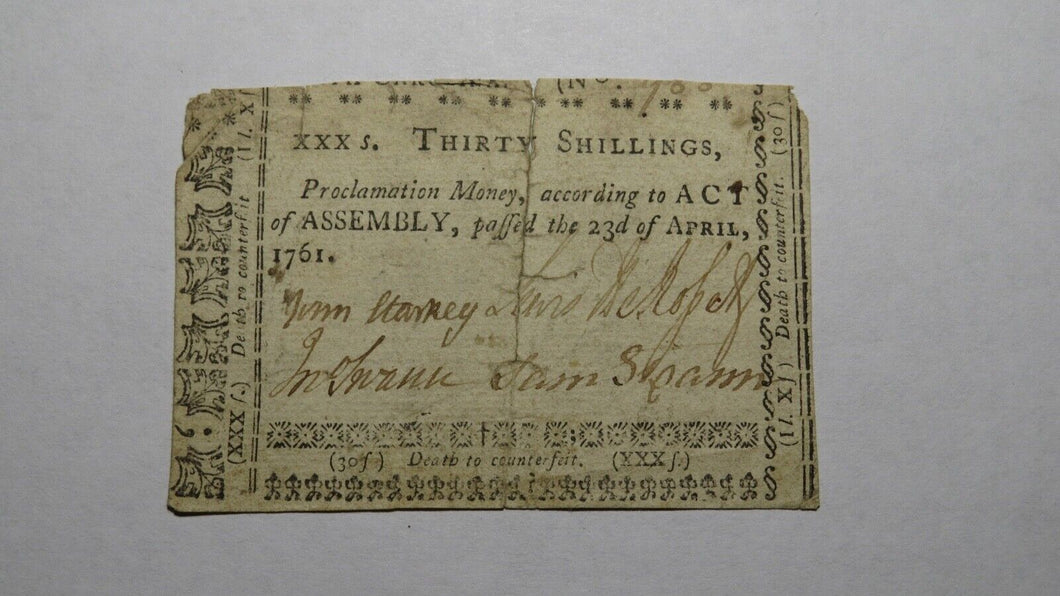 (No. 
XXX s. THIRTY SHILLINGS,
Proclamation Money, according to ACT
of ASSEMBLY, paſſed the 23d of APRIL,
1761.
Jnn Starkey Lewis De Roſſet
Jn Swann Sam Swann
(30ſ) Death to counterfeit. (XXX ſ.)
(XXX ſ.) Death to counterfeit (1 l. X ſ
(1 l. X ſ) Death to counterfeit. (30ſ)